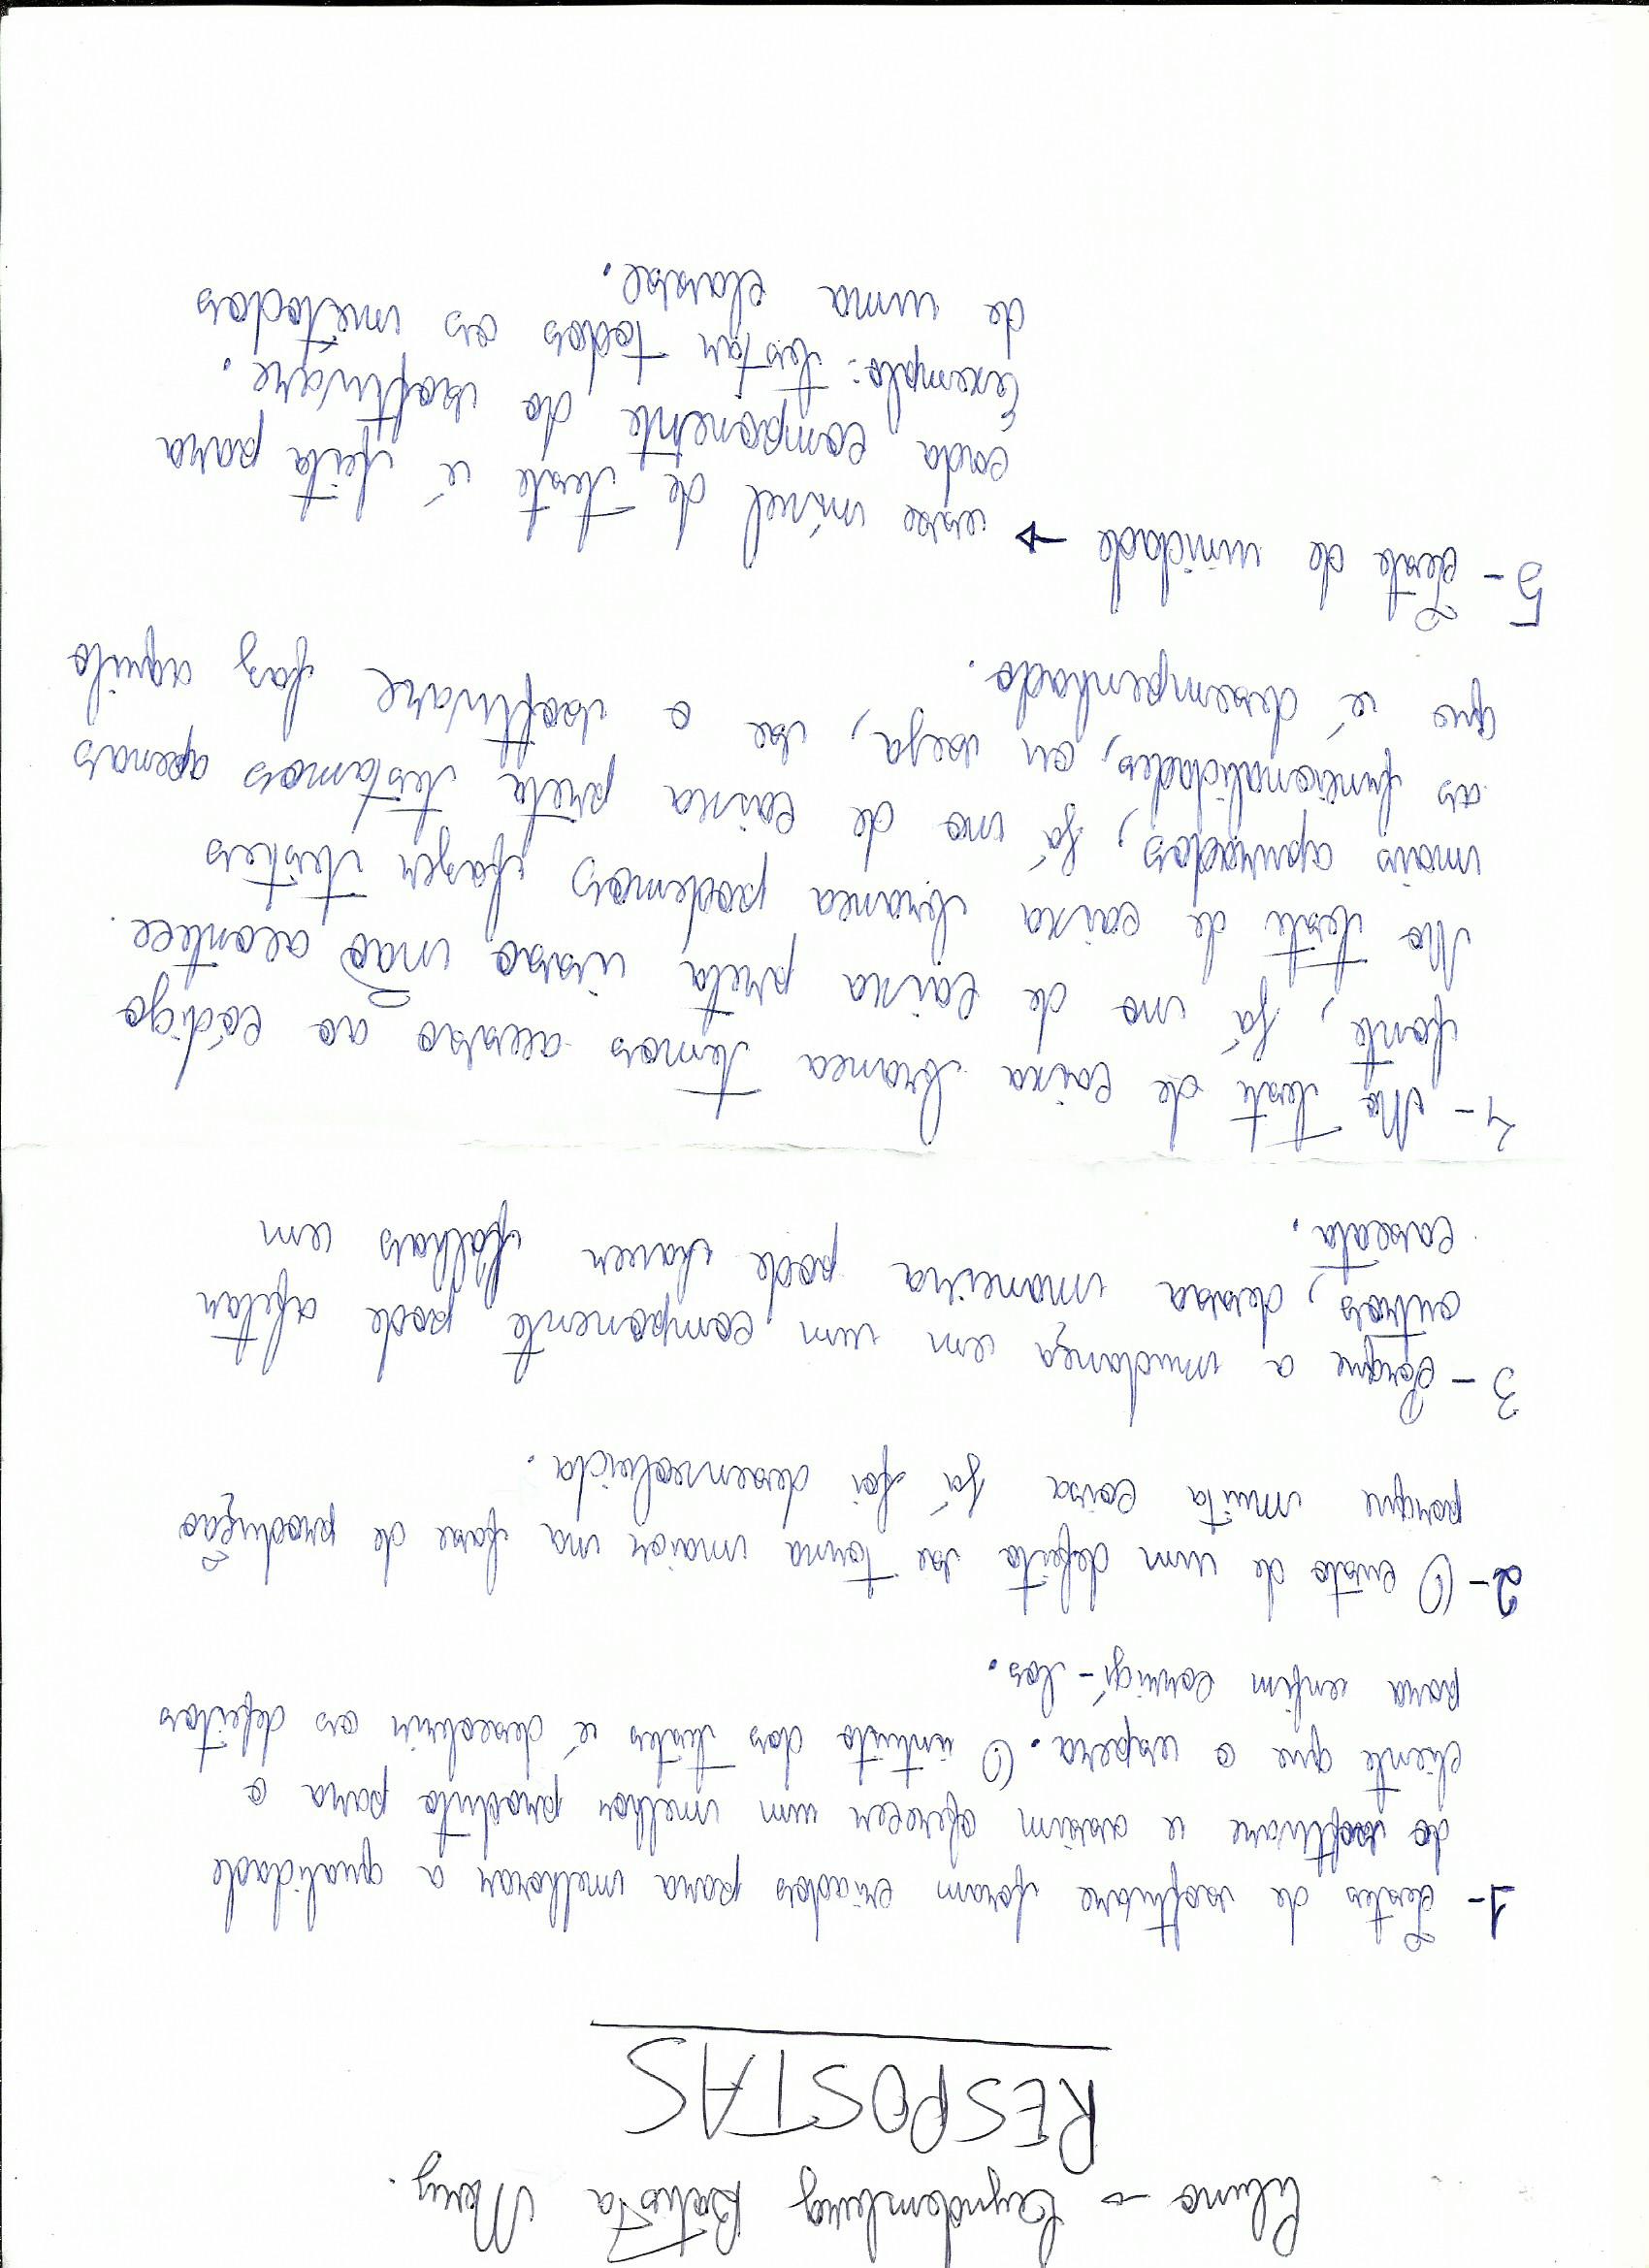 Aluno → Lyndemburg Batista Nery.
RESPOSTAS
1- Testes de software foram criados para melhorar a qualidade
do software e assim oferecer um melhor produto para o
cliente que o espera. O intuito dos testes é descobrir os defeitos
para enfim corrigí-los.
2- O custo de um defeito se torna maior na fase de produção
porque muita coisa já foi desenvolvida.
3- Porque a mudança em um componente pode afetar
outros, dessa maneira pode haver falhas em
cascata.
4- No teste de caixa branca temos acesso ao código
fonte, já no de caixa preta isso não acontece.
No teste de caixa branca podemos fazer testes
mais apurados, já no de caixa preta testamos apenas
as funcionalidades, ou seja, se o software faz aquilo
que é desempenhado.
5- Teste de unidade → esse nível de teste é feita para
cada componente do software.
Exemplo: testar todos os métodos
de uma classe.